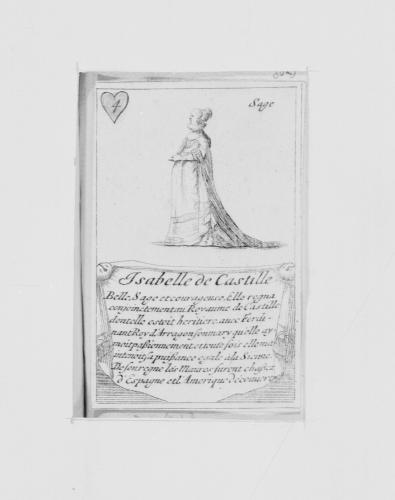 4
Sage
Isabelle de Castille
Belle, Sage et courageuse, Elle regna
conjoinctement au Royaume de Castille
dont elle estoit heritiere, avec Ferdi-
nant Roy d'Arragon son mary qu'elle ay-
moit passionnement, et toutefois elle ma-
intenoit sa puissance egale à la Sienne.
De son regne les Maures furent chassez
d'Espagne et l'Amerique découverte